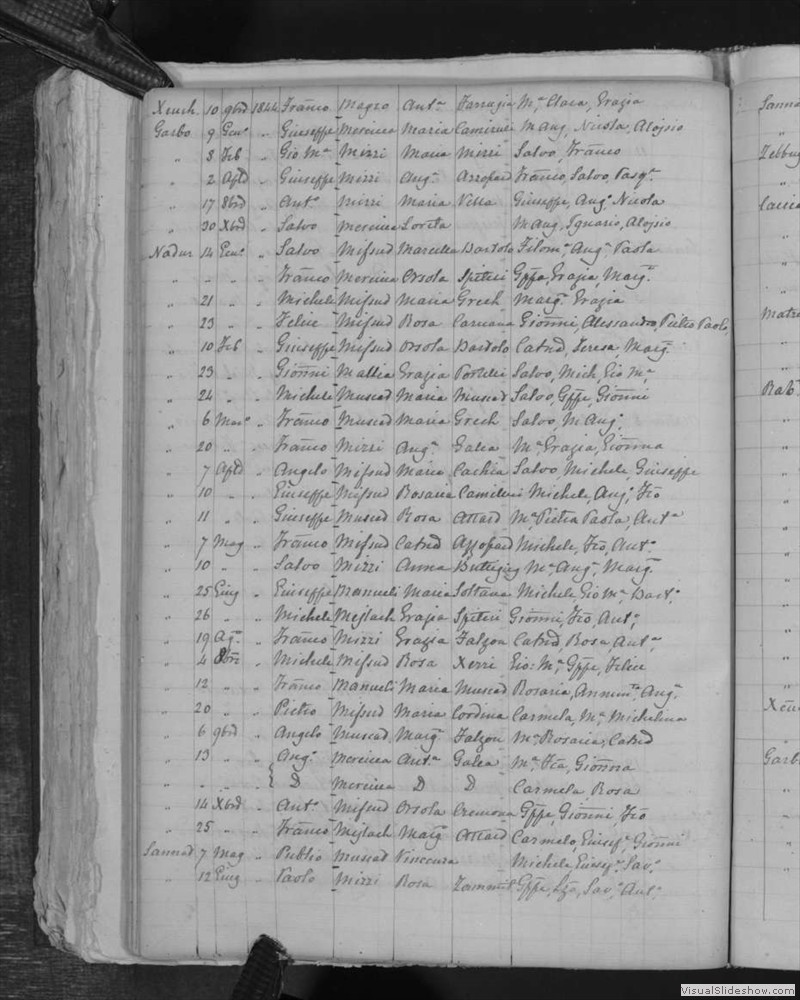 Xeuch. 10 9brẽ 1844 Franco Magro Antᵃ Farrugia Mᵃ Clara, Grazia
Garbo 9 Genº „ Giuseppe Mercieca Maria Camilleri M Aug, Nicola, Aloisio
„ 8 Feb „ Gio Mᵃ Mizzi Maria Mizzi Salvo, Franco
„ 2 Aple „ Giuseppe Mizzi Angᵃ Azzopard Franco, Salvo, Pasqᵉ
„ 17 8brẽ „ Antº Mizzi Maria Vella Giuseppe, Angº Nicola
„ 30 Xbrẽ „ Salvo Mercieca Loreta M Aug, Ignazio, Aloisio
Nadur 14 Genº „ Salvo Mifsud Marcella Bartolo Filomᵃ, Angᵃ Paola
„ „ „ „ Franco Mercieca Orsola Spiteri Gppe, Grazia, Margᵃ
„ 21 „ „ Michele Mifsud Maria Grech Margᵃ Grazia
„ 23 „ „ Felice Mifsud Rosa Caruana Gionni, Alessandro, Pietro Paolo
„ 10 Feb „ Giuseppe Mifsud Orsola Bartolo Catnd, Teresa, Margᵃ
„ 23 „ „ Gionni Mallia Grazia Portelli Salvo, Mich, Gio Mᵃ
„ 24 „ „ Michele Muscad Maria Muscad Salvo, Gppe, Gionni
„ 6 Marº „ Franco Muscad Maria Grech Salvo, M Augº
„ 20 „ „ Franco Mizzi Angᵃ Galea Mᵃ Grazia, Gionna
„ 7 Aple „ Angelo Mifsud Maria Cachia Salvo, Michele, Giuseppe
„ 10 „ „ Giuseppe Mifsud Rosaria Camilleri Michele, Angº, Frõ
„ 11 „ „ Giuseppe Muscad Rosa Attard Mᵃ Pietra Paola, Antᵃ
„ 7 Mag „ Franco Mifsud Catnd Azzopard Michele, Frõ, Antº
„ 10 „ „ Salvo Mizzi Anna Buttigieg Mᵃ Angᵃ, Margᵃ
„ 25 Giug „ Giuseppe Manueli Maria Soltana Michele, Gio Mᵃ, Bartº
„ 26 „ „ Michele Mejlach Grazia Spiteri Gionni, Frõ, Antº
„ 19 Agº „ Franco Mizzi Grazia Falzon Catnd, Rosa, Antᵃ
„ 4 8brẽ „ Michele Mifsud Rosa Xerri Gio: Mᵃ, Gppe, Felice
„ 12 „ „ Franco Manueli Maria Muscad Rosaria, Annunᵗᵃ, Angᵃ
„ 20 „ „ Pietro Mifsud Maria Cordina Carmela, Mᵃ, Michelina
„ 6 9brẽ „ Angelo Muscad Margᵃ Falzon Mᵃ Rosaria, Catnd
„ 13 „ „ Angº Mercieca Antᵃ Galea Mᵃ Frã, Gionna
„ „ „ „ { D Mercieca D D Carmela Rosa
„ 14 Xbrẽ „ Antº Mifsud Orsola Cremona Gppe, Gionni, Frõ
„ 25 „ „ Franco Mejlach Margᵃ Attard Carmelo, Giusepᵉ, Gionni
Sannat 7 Mag „ Publio Muscad Vincenza Michele, Giusepᵉ, Savº
„ 12 Giug „ Paolo Mizzi Rosa Zammit Gppe, Lzõ, Savº, Antº
Sanna
Zebbug
„
Caccia
„
Matri
„
„
Rab.
„
Xeu
Garb
VisualSlideshow.com